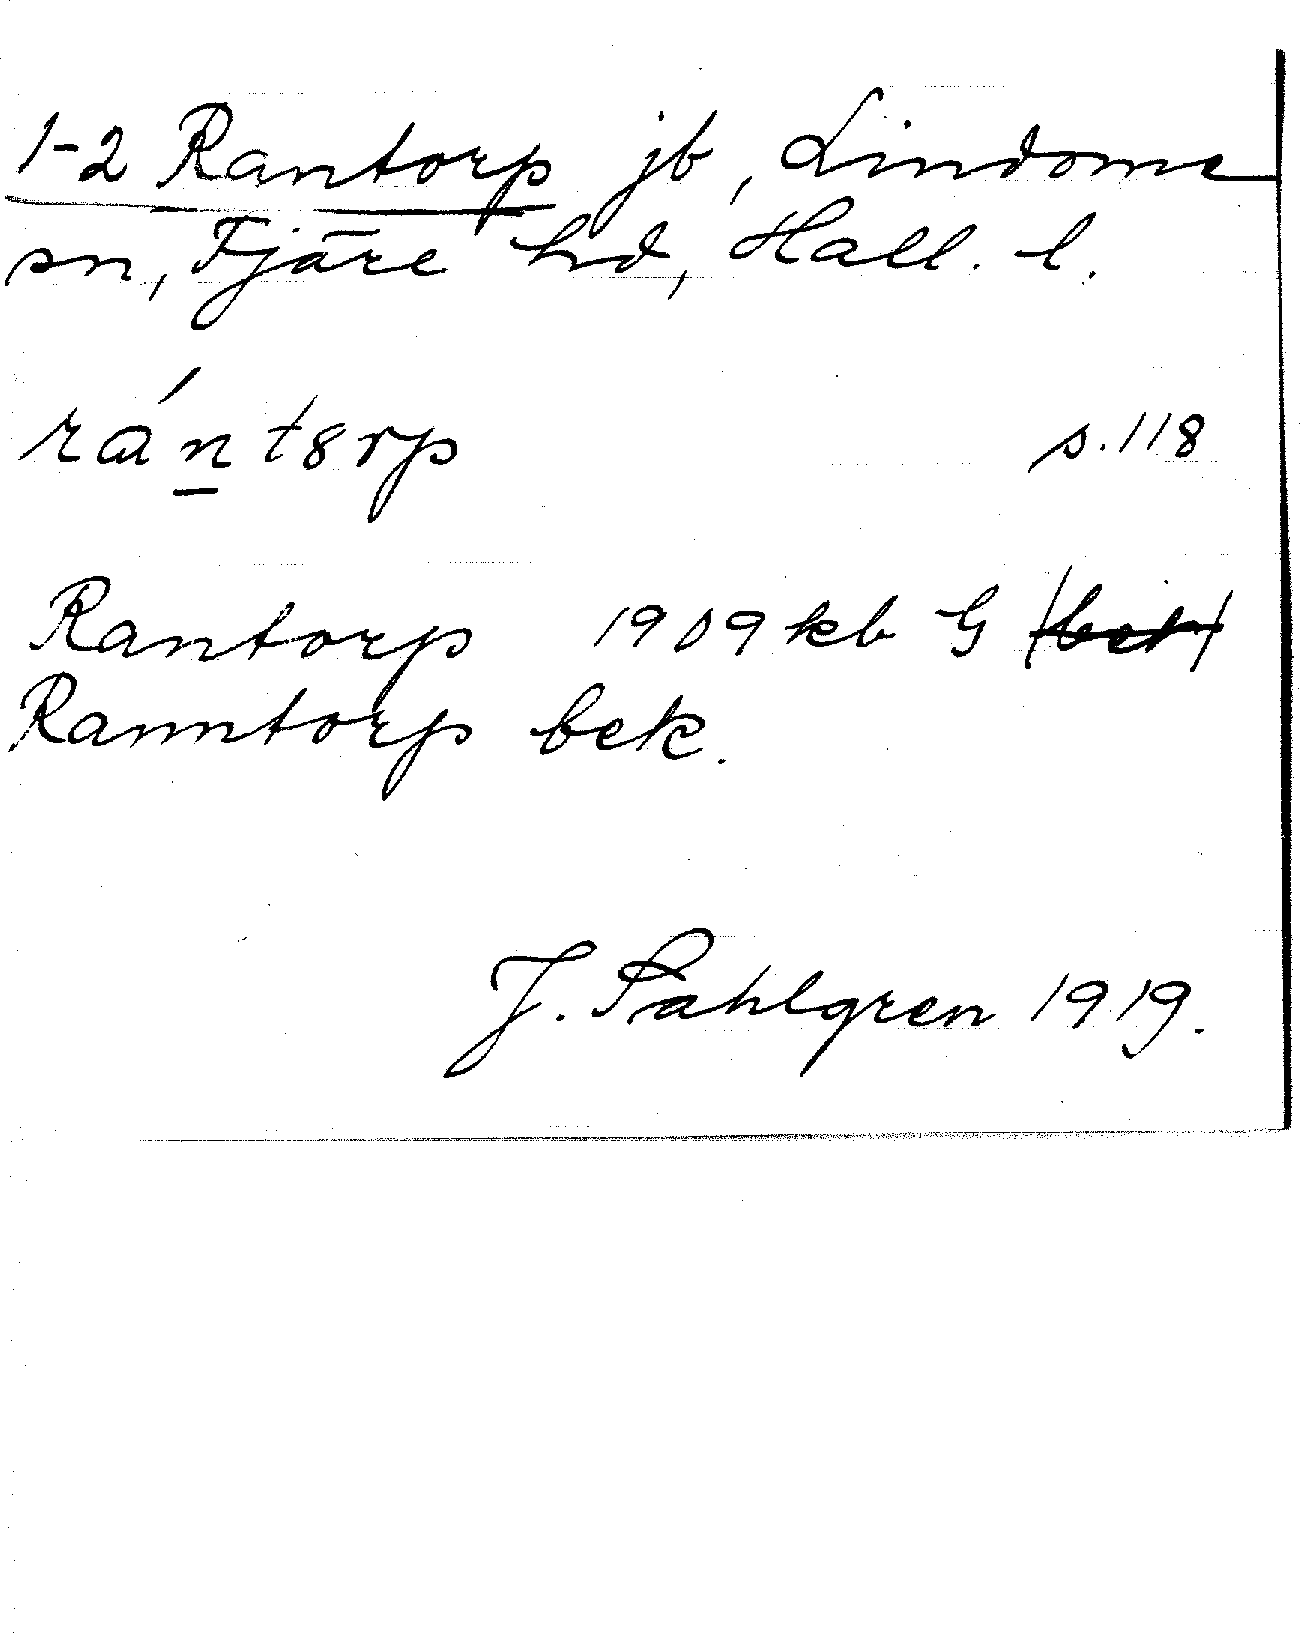 1-2 Rantorp jb, Lindome
sn, Fjäre hd, Hall. l.
rán tȣrp s. 118
Rantorp 1909 kb G (bek)
Ranntorp bek.
J. Sahlgren 1919.